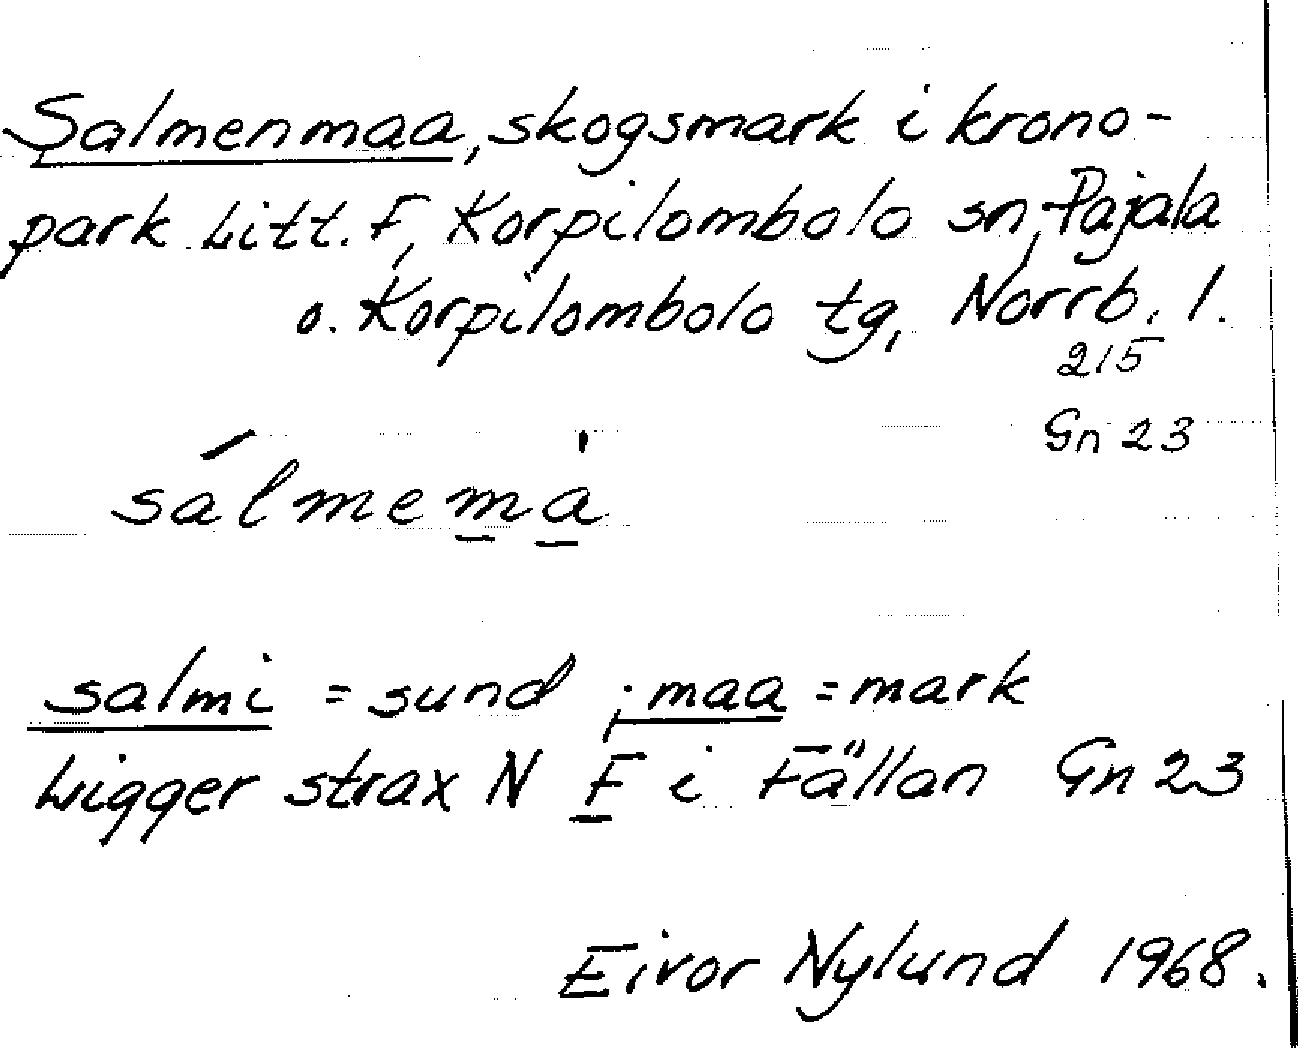 Salmenmaa, skogsmark i krono-
park Litt. F, Korpilombolo sn, Pajala
o. Korpilombolo tg, Norrb. l.
215
Gn 23
sálmemà
salmi = sund ; maa = mark
Ligger strax N F i Fällan Gn 23
Eivor Nylund 1968.